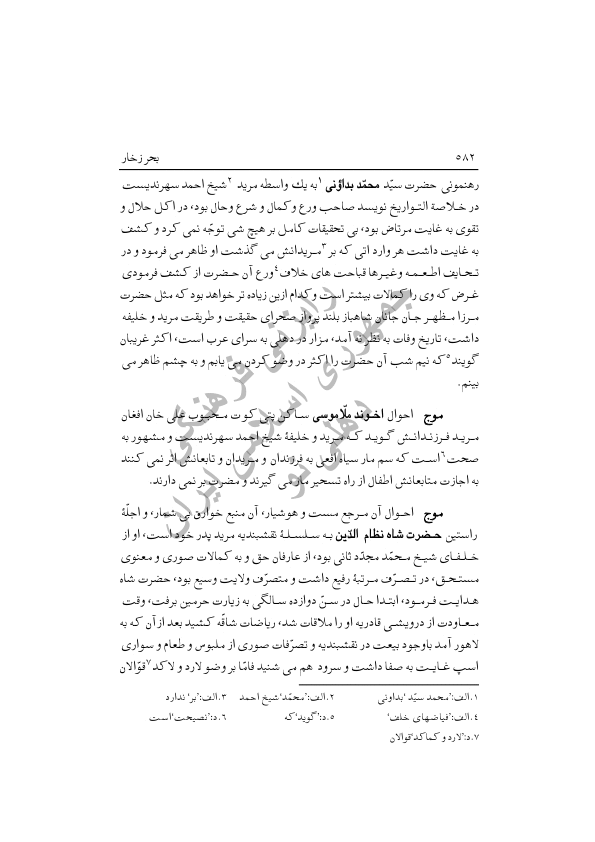 ۵۸۲ بحر زخار
رهنمونی حضرت سیّد محمّد بداؤنی ۱به یك واسطه مرید ۲شیخ احمد سهرندیست
در خلاصة التواریخ نویسد صاحب ورع وکمال و شرع وحال بود، در اکل حلال و
تقوی به غایت مرتاض بود، بی تحقیقات کامل بر هیچ شی توجّه نمی کرد و کشف
به غایت داشت هر وارد اتی که بر۳مریدانش می گذشت او ظاهر می فرمود و در
تحایف اطعمه وغیرها قباحت های خلاف۴ورع آن حضرت از کشف فرمودی
غرض که وی را کمالات بیشتر است و کدام ازین زیاده تر خواهد بود که مثل حضرت
مرزا مظهر جان جانان شاهباز بلند پرواز صحرای حقیقت و طریقت مرید و خلیفه
داشت، تاریخ وفات به نظر نه آمد، مزار در دهلی به سرای عرب است، اکثر غریبان
گویند۵که نیم شب آن حضرت را اکثر در وضو کردن می یابم و به چشم ظاهر می
بینم.
موج احوال اخوند ملّاموسی ساکن پتی کوت محبوب علی خان افغان
مرید فرزندانش گوید که مرید و خلیفهٔ شیخ احمد سهرندیست و مشهور به
صحت۶است که سم مار سیاه افعی به فرزندان و مریدان و تابعانش اثر نمی کنند
به اجازت متابعانش اطفال از راه تسحیر مار می گیرند و مضرت بر نمی دارند.
موج احوال آن مرجع مست و هوشیار، آن منبع خوارق بی شمار، و اجلّهٔ
راستین حضرت شاه نظام الدّین به سلسلهٔ نقشبندیه مرید پدر خود است، او از
خلفای شیخ محمّد مجدّد ثانی بود، از عارفان حق و به کمالات صوری و معنوی
مستحق، در تصرّف مرتبهٔ رفیع داشت و متصرّف ولایت وسیع بود، حضرت شاه
هدایت فرمود، ابتدا حال در سنّ دوازده سالگی به زیارت حرمین برفت، وقت
معاودت از درویشی قادریه او را ملاقات شد، ریاضات شاقّه کشید بعد از آن که به
لاهور آمد باوجود بیعت در نقشبندیه و تصرّفات صوری از ملبوس و طعام و سواری
اسپ غایت به صفا داشت و سرود هم می شنید فامّا بر وضو لارد و لاکد۷قوّالان
۱.الف:'محمد سیّد 'بداونی ۲.الف:'محمّد'شیخ احمد ۳.الف:'بر' ندارد
۴.الف:'فیاضهای خلف' ۵.د:'گوید'که ۶.د:'نصیحت'است
۷.د:'لارد و کماکد'قوالان
رایزنی فرهنگی
جمهوری اسلامی ایران
دهلی نو